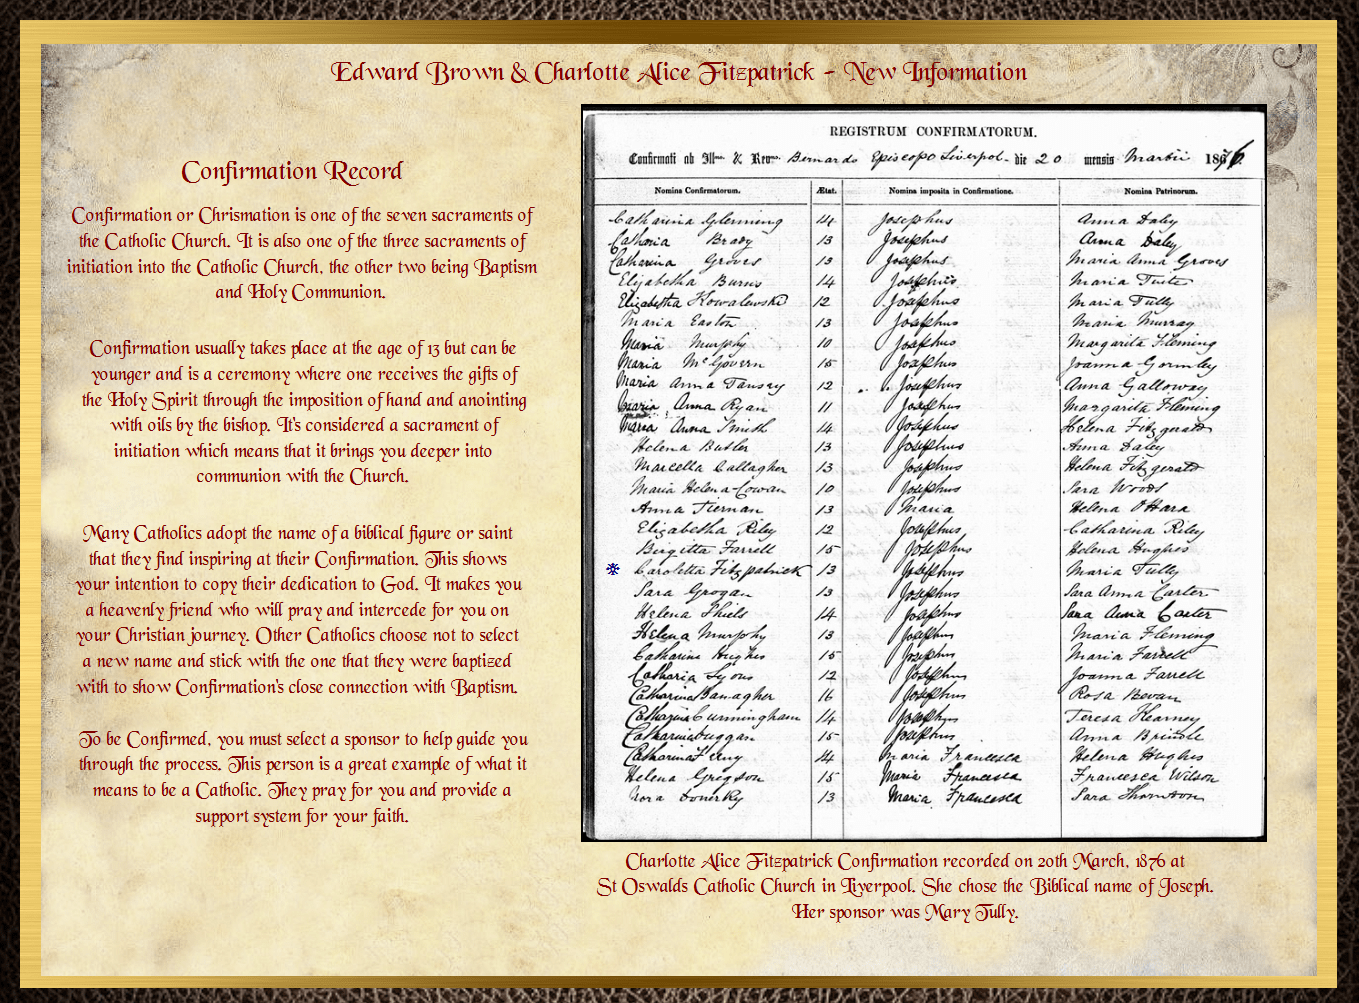 Edward Brown & Charlotte Alice Fitzpatrick - New Information
Confirmation Record
Confirmation or Chrismation is one of the seven sacraments of
the Catholic Church. It is also one of the three sacraments of
initiation into the Catholic Church, the other two being Baptism
and Holy Communion.
Confirmation usually takes place at the age of 13 but can be
younger and is a ceremony where one receives the gifts of
the Holy Spirit through the imposition of hand and anointing
with oils by the bishop. It's considered a sacrament of
initiation which means that it brings you deeper into
communion with the Church.
Many Catholics adopt the name of a biblical figure or saint
that they find inspiring at their Confirmation. This shows
your intention to copy their dedication to God. It makes you
a heavenly friend who will pray and intercede for you on
your Christian journey. Other Catholics choose not to select
a new name and stick with the one that they were baptized
with to show Confirmation's close connection with Baptism.
To be Confirmed, you must select a sponsor to help guide you
through the process. This person is a great example of what it
means to be a Catholic. They pray for you and provide a
support system for your faith.
REGISTRUM CONFIRMATORUM.
Confirmati ab Illmo. & Revmo. Bernardo Episcopo Liverpol. die 20 mensis Martii 1876
Nomina Confirmatorum. Ætat. Nomina imposita in Confirmatione. Nomina Patrinorum.
Catharina Glenning 14 Josephus Anna Daley
Catharia Brady 13 Josephus Anna Daley
Catharina Groves 13 Josephus Maria Anna Groves
Elizabetha Burns 14 Josephus Maria Tuite
Elizabetha Kowalewski 12 Josephus Maria Tully
Maria Easton 13 Josephus Maria Murray
Maria Murphy 10 Josephus Margarita Fleming
Maria McGovern 15 Josephus Joanna Gormley
Maria Anna Tansey 12 Josephus Anna Galloway
Maria Anna Ryan 11 Josephus Margarita Fleming
Maria Anna Smith 14 Josephus Helena Fitzgerald
Helena Butler 13 Josephus Anna Daley
Marcella Gallagher 13 Josephus Helena Fitzgerald
Maria Helena Cowan 10 Josephus Sara Woods
Anna Tiernan 13 Maria Helena O'Hara
Elizabetha Riley 12 Josephus Catharina Riley
Birgitta Farrell 15 Josephus Helena Hughes
Caroletta Fitzpatrick 13 Josephus Maria Tully
Sara Grogan 13 Josephus Sara Anna Carter
Helena Shiels 14 Josephus Sara Anna Carter
Helena Murphy 13 Josephus Maria Fleming
Catharine Hughes 15 Josephus Maria Farrell
Catharia Lyons 12 Josephus Joanna Farrell
Catharina Ganagher 16 Josephus Rosa Bevan
Catharina Cunningham 14 Josephus Teresa Kearney
Catharina Duggan 15 Josephus Anna Brindle
Catharina Feeny 14 Maria Francesca Helena Hughes
Helena Grigson 15 Maria Francesca Francesca Wilson
Nora 13 Maria Francesca Sara Thornton
Charlotte Alice Fitzpatrick Confirmation recorded on 20th March, 1876 at
St Oswalds Catholic Church in Liverpool. She chose the Biblical name of Joseph.
Her sponsor was Mary Tully.